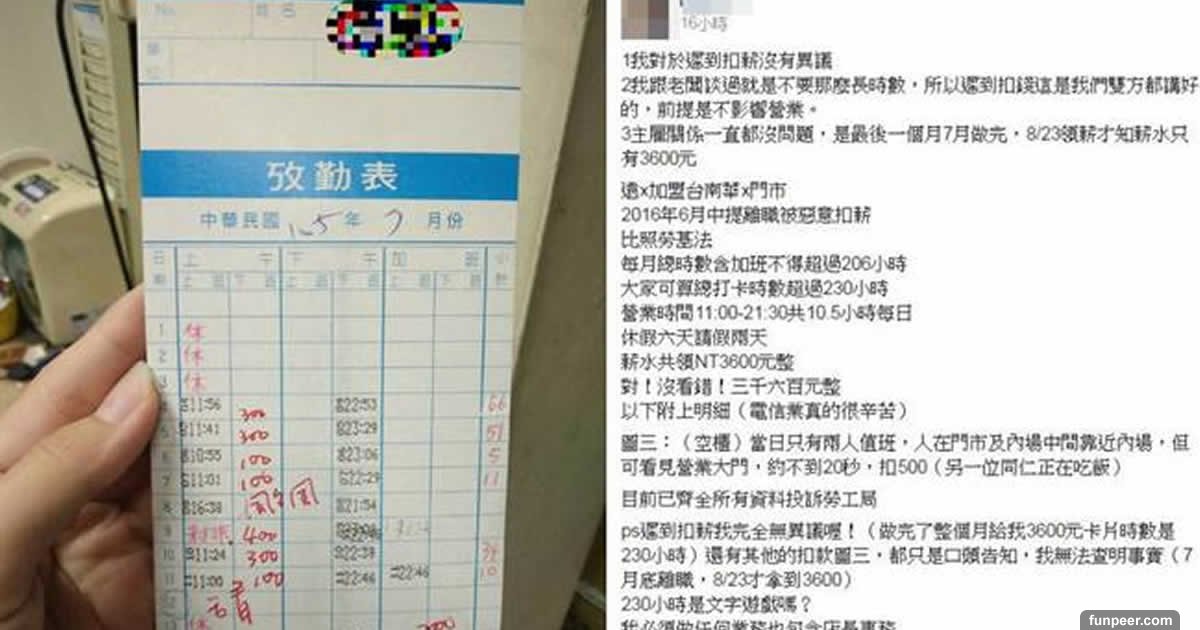 No.
姓名
攷勤表
中華民國 105年 7月份
日期 上午 下午 加班 小數
上班 下班 上班 下班 上班 下班
1 休
2 休
3 休
11:56 300 22:53 66
5 11:41 300 23:29 51
6 10:55 100 23:06 5
7 11:01 100 22:29 11
8 16:38 21:54
9 400
10 11:24 300 22:38
11 11:00 100 22:46 22:46 10
16小時
1我對於遲到扣薪沒有異議
2我跟老闆談過就是不要那麼長時數，所以遲到扣錢這是我們雙方都講好
的，前提是不影響營業。
3主屬關係一直都沒問題，是最後一個月7月做完，8/23領薪才知薪水只
有3600元
遠x加盟台南華x門市
2016年6月中提離職被惡意扣薪
比照勞基法
每月總時數含加班不得超過206小時
大家可算總打卡時數超過230小時
營業時間11:00-21:30共10.5小時每日
休假六天請假兩天
薪水共領NT3600元整
對！沒看錯！三千六百元整
以下附上明細（電信業真的很辛苦）
圖三：（空櫃）當日只有兩人值班，人在門市及內場中間靠近內場，但
可看見營業大門，約不到20秒，扣500（另一位同仁正在吃飯）
目前已齊全所有資料投訴勞工局
ps遲到扣薪我完全無異議喔！（做完了整個月給我3600元卡片時數是
230小時）還有其他的扣款圖三，都只是口頭告知，我無法查明事實（7
月底離職，8/23才拿到3600）
230小時是文字遊戲嗎？
我必須做任何業務也包含店長事務
funpeer.com